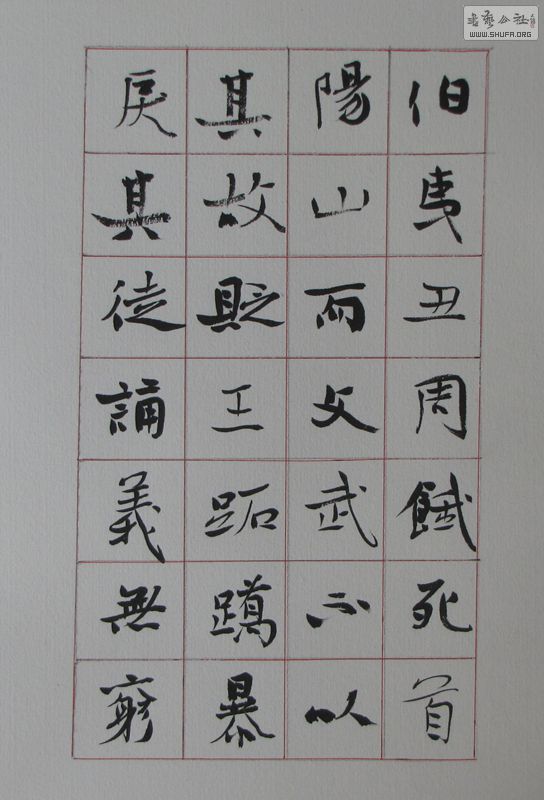 伯夷丑周餓死首
陽山而文武不以
其故貶王跖蹻暴
戾其徒誦義無窮
書藝公社
WWW.SHUFA.ORG